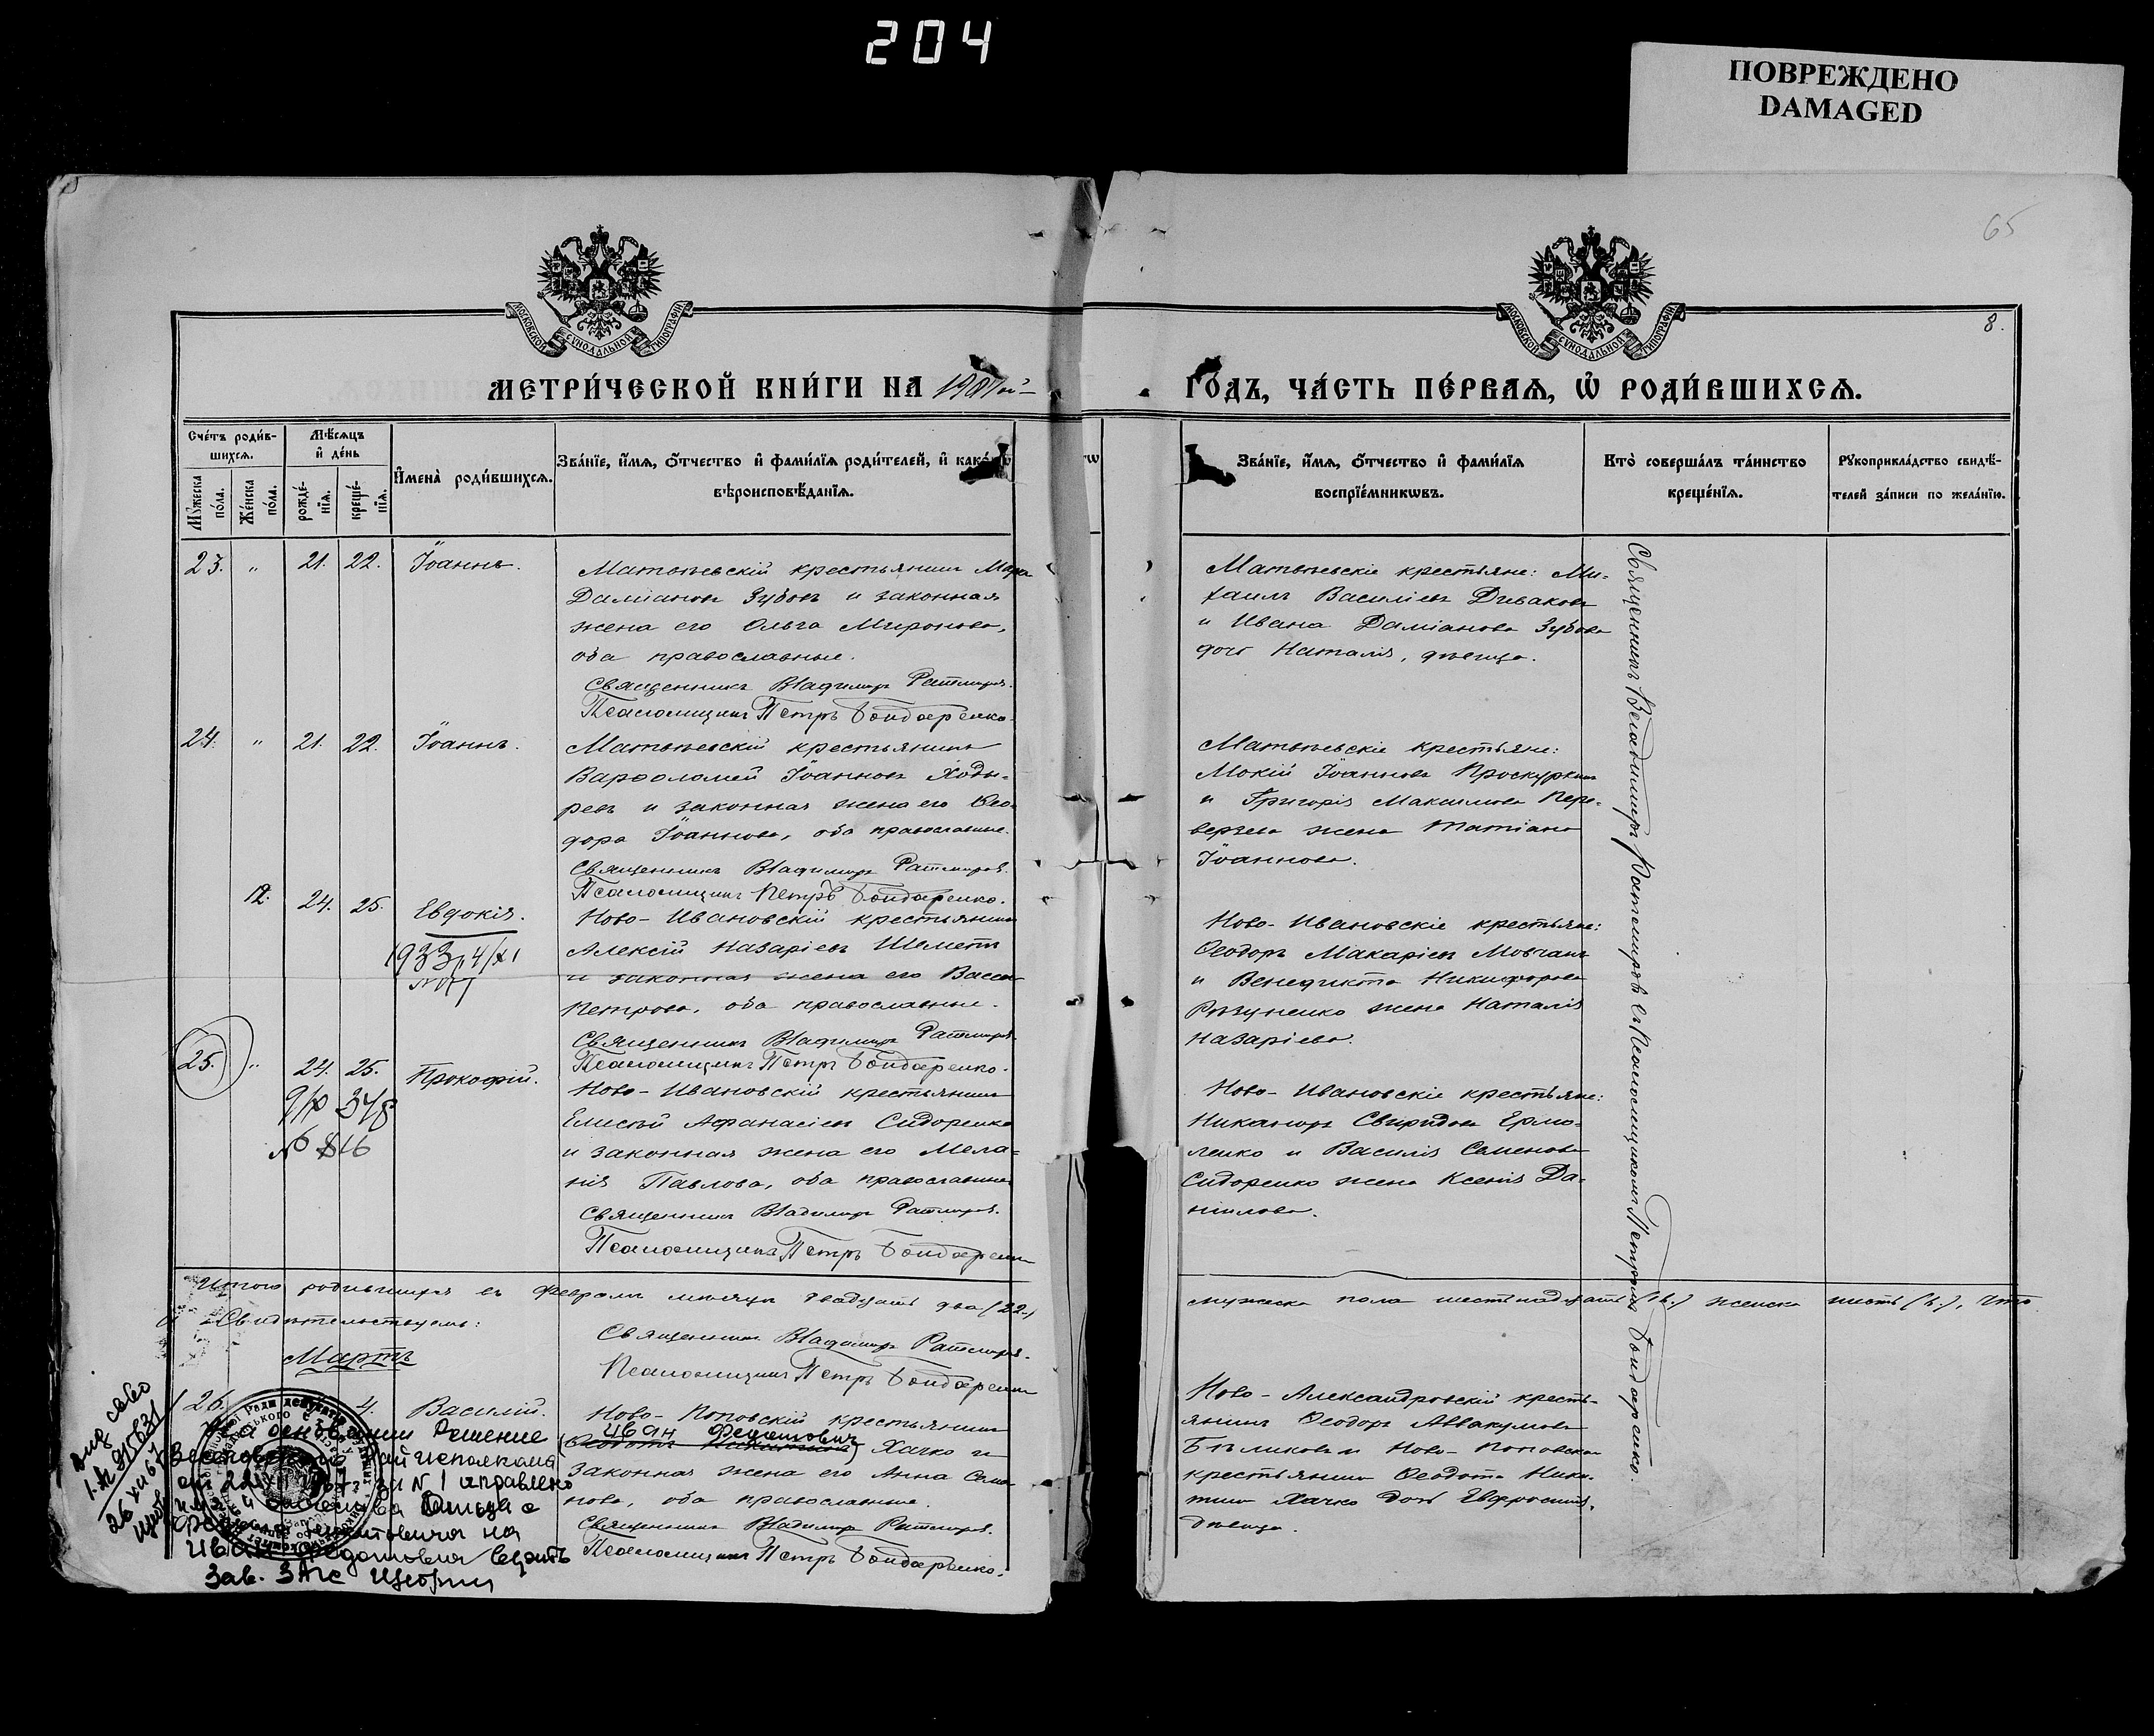 204
ПОВРЕЖДЕНО
DAMAGED
65
8.
МОСКОВСКОЙ СУНОДАЛЬНОЙ ТИПОГРАФІИ
МОСКОВСКОЙ СУНОДАЛЬНОЙ ТИПОГРАФІИ
МЕТРИ́ЧЕСКОЙ КНИ́ГИ НА 1907й
ГО́ДЪ, ЧА́СТЬ ПЕ́РВАѦ, Ѡ РОДИ́ВШИХСѦ.
Сче́тъ роди́в-
шихсѧ.
Мꙋ́жеска по́ла.
Же́нска по́ла.
Мѣ́сѧцъ
и҆ де́нь
рожде́-
нїѧ.
креще́-
нїѧ.
И҆мена̀ роди́вшихсѧ.
Зва́нїе, и҆́мѧ, ѻ҆́тчество и҆ фами́лїѧ роди́телей, и҆ како́гѡ
вѣроисповѣ́данїѧ.
Зва́нїе, и҆́мѧ, ѻ҆́тчество и҆ фами́лїѧ
воспрїе́мникѡвъ.
Кто̀ соверша́лъ та́инство
креще́нїѧ.
Рꙋкоприкла́дство свидѣ́-
телей за́писи по жела́нїю.
23. " 21. 22. Іоаннъ.
Матвѣевскій крестьянинъ
Даміановъ Зубовъ и законная
жена его Ольга Миронова,
оба православные.
Священникъ Владимиръ Ратмировъ.
Псаломщикъ Петръ Бондаренко.
Матвѣевскіе крестьяне: Ми-
хаилъ Василіевъ Диваковъ
и Ивана Даміанова Зубова
дочь Наталія, дѣвица.
24. " 21. 22. Іоаннъ.
Матвѣевскій крестьянинъ
Варѳоломей Іоанновъ Ходы-
ревъ и законная жена его Ѳео-
дора Іоаннова, оба православные.
Священникъ Владимиръ Ратмировъ.
Псаломщикъ Петръ Бондаренко.
Матвѣевскіе крестьяне:
Мокій Іоанновъ Проскуринъ
и Григорія Максимова Пере-
верзева жена Татіана
Іоаннова.
12. 24. 25. Евдокія.
1933 4/XI
Ново-Ивановскій крестьянинъ
Алексій Назаріевъ Шеметъ
и законная жена его Васса
Петрова, оба православные.
Священникъ Владимиръ Ратмировъ.
Псаломщикъ Петръ Бондаренко.
Ново-Ивановскіе крестьяне:
Ѳеодоръ Макаріевъ Мовчанъ
и Венедикта Никифорова
жена Наталія
Назаріева.
25. " 24. 25. Прокофій.
№ 816
Ново-Ивановскій крестьянинъ
Елисей Аѳанасіевъ Сидоренко
и законная жена его Мела-
нія Павлова, оба православные.
Священникъ Владимиръ Ратмировъ.
Псаломщикъ Петръ Бондаренко
Ново-Ивановскіе крестьяне:
Никаноръ Свиридовъ Ермо-
ленко и Василія Семенова
Сидоренко жена Ксенія Да-
нилова.
Священникъ Владимиръ Ратмировъ съ псаломщикомъ Петромъ Бондаренко.
Итого родившихся въ Февралѣ мѣсяцѣ двадцать два (22.)
мужеска пола шестнадцать (16.) женска шесть (6.), что
и свидѣтельствуемъ:
Священникъ Владимиръ Ратмировъ.
Псаломщикъ Петръ Бондаренко
Мартъ
26. 4. Василій.
Ново-Поповскій крестьянинъ
Иван Федотович
(Ѳеодотъ Никитинъ) Хачко и
законная жена его Анна Семе-
нова, оба православные.
Священникъ Владимиръ Ратмировъ.
Псаломщикъ Петръ Бондаренко.
Ново-Александровскій кресть-
янинъ Ѳеодоръ Аввакумовъ
Бѣликовъ и Ново-Поповскаго
крестьянина Ѳеодота Ники-
тина Хачко дочь Евфросинія,
дѣвица.
На основании Решение
райисполкома
№ 1 исправлено
имя и отчества отца с
на
Иван Федотович
Зав. ЗАГС
26 XII 67